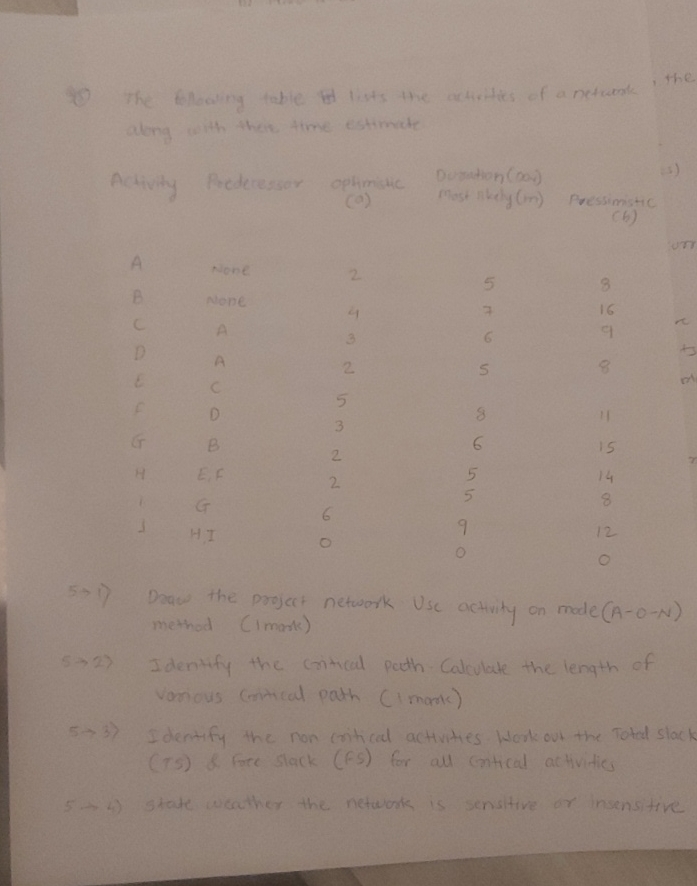 The following table lists the activities of a network
along with their time estimate.
the
Activity Predecessor optimistic Duration (day)
(o) Most likely (m) Pressimistic
(b)
A None 2 5 8
B None 4 7 16
C A 3 6 9
D A 2 5 8
E C 5 8 11
F D 3 6 15
G B 2 5 14
H E, F 2 5 8
I G 6 9 12
J H, I 0 0 0
5→1) Draw the project network Use activity on mode (A-O-N)
method (1 mark)
5→2) Identify the critical path. Calculate the length of
various critical path (1 mark)
5→3) Identify the non critical activities. Work out the Total slack
(TS) & free slack (FS) for all critical activities
5→4) state weather the network is sensitive or insensitive